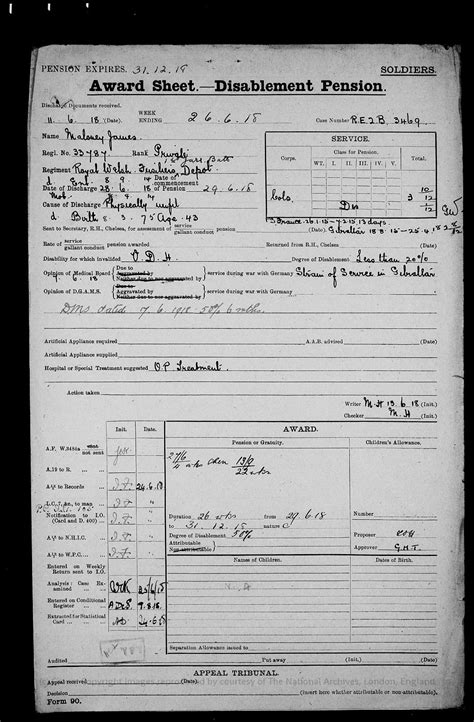 PENSION EXPIRES. 31.12.18 SOLDIERS.
Award Sheet.—Disablement Pension.
Discharge Documents received.
11. 6. 18 (Date). WEEK ENDING 26.6.18 Case Number R.E.2.B. 3469
Name Maloney James. SERVICE.
Regl. No. 33787 Rank Private
Corps. Class for Pension. Total.
WI. I. II. III. IV. V.
Regiment Royal Welsh Fusiliers, Depot.
d Enl. 8 9 14 Date of commencement
Date of Discharge 28. 6. 18 of Pension 29.6.18
Cause of Discharge Physically unfit
d Birth 8. 3. 75 Age 43
France 26.1.15-7.2.15 13 days.
Sent to Secretary, R.H., Chelsea, for assessment of service gallant conduct pension (Date) Gibraltar 18.8.15-25.4.18
Rate of service gallant conduct pension awarded Returned from R.H., Chelsea (Date)
Disability for which invalided V.D.H. Degree of Disablement Less than 20%
Opinion of Medical Board Due to Aggravated by Neither due to nor aggravated by service during war with Germany Strain of Service in Gibraltar
6. 18
Opinion of D.G.A.M.S. Due to Aggravated by Neither due to nor aggravated by service during war with Germany
DMS dated 7.6.1918 50% 6 mths.
Artificial Appliance required A.A.B. advised (Date)
Artificial Appliance fitted (Date)
Hospital or Special Treatment suggested O.P. Treatment.
Action taken
Writer M.H 13.6.18 (Init.)
Checker M.H (Init.)
Init. Date. AWARD.
Pension or Gratuity. Children's Allowance.
A.F. W.3484a sent not sent
27/6 4 wks then 13/9 22 wks
A.19 to R.
A¼ to Records 24.6.18
L.C.7, &c., to man
Notification to I.O. (Card and D. 400)
Duration 26 wks from 29.6.18 Number
to 31.12.18 nature C
A¼ to N.H.I.C. Degree of Disablement 50% Proposer
Attributable Not attributable Approver G.H.T.
A¼ to W.P.C.
Names of Children. Dates of Birth.
Entered on Weekly Return sent to I.O.
Analysis: Case Examined
Entered on Conditional Register 9.8.18
Extracted for Statistical Card 24.6.18
Separation Allowance issued to
Audited Put away (Init.) (Date)
APPEAL TRIBUNAL.
Copyright images reproduced by courtesy of The National Archives, London, England.
Appeal received (Date)
Decision (Insert here whether attributable or non-attributable).
Form 90.